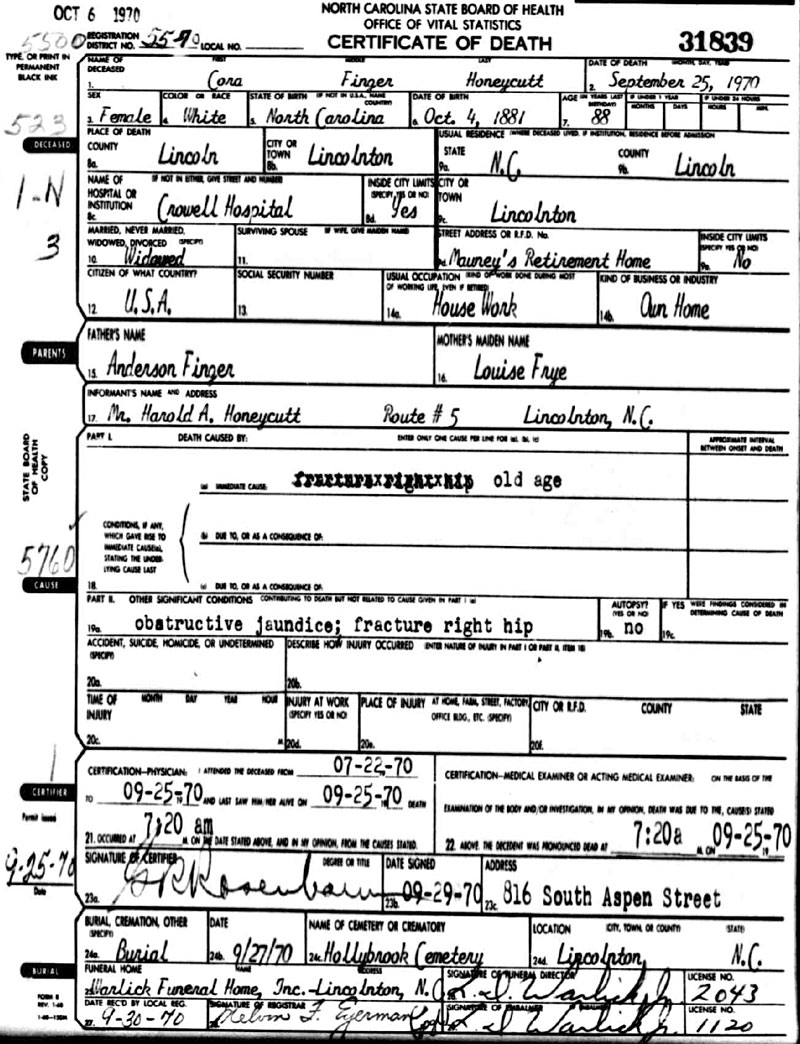 OCT 6 1970
NORTH CAROLINA STATE BOARD OF HEALTH
OFFICE OF VITAL STATISTICS
5500 REGISTRATION DISTRICT NO. 55-90 LOCAL NO.
CERTIFICATE OF DEATH 31839
TYPE, OR PRINT IN PERMANENT BLACK INK
NAME OF DECEASED FIRST MIDDLE LAST DATE OF DEATH MONTH, DAY, YEAR
1. Cora Finger Honeycutt 2. September 25, 1970
SEX COLOR OR RACE STATE OF BIRTH (IF NOT IN U.S.A., NAME COUNTRY) DATE OF BIRTH AGE (IN YEARS LAST BIRTHDAY) IF UNDER 1 YEAR IF UNDER 24 HOURS
MONTHS DAYS HOURS MIN.
3. Female 4. White 5. North Carolina 6. Oct. 4, 1881 7. 88
523
DECEASED
PLACE OF DEATH USUAL RESIDENCE (WHERE DECEASED LIVED. IF INSTITUTION, RESIDENCE BEFORE ADMISSION
COUNTY CITY OR TOWN STATE COUNTY
8a. Lincoln 8b. Lincolnton 9a. N.C. 9b. Lincoln
1-N
NAME OF HOSPITAL OR INSTITUTION (IF NOT IN EITHER, GIVE STREET AND NUMBER) INSIDE CITY LIMITS (SPECIFY YES OR NO) CITY OR TOWN
8c. Crowell Hospital 8d. Yes 9c. Lincolnton
3
MARRIED, NEVER MARRIED, WIDOWED, DIVORCED (SPECIFY) SURVIVING SPOUSE (IF WIFE, GIVE MAIDEN NAME) STREET ADDRESS OR R.F.D. No. INSIDE CITY LIMITS (SPECIFY YES OR NO)
10. Widowed 11. 9d. Mauney's Retirement Home 9e. No
CITIZEN OF WHAT COUNTRY? SOCIAL SECURITY NUMBER USUAL OCCUPATION (KIND OF WORK DONE DURING MOST OF WORKING LIFE, EVEN IF RETIRED) KIND OF BUSINESS OR INDUSTRY
12. U.S.A. 13. 14a. House Work 14b. Own Home
PARENTS
FATHER'S NAME MOTHER'S MAIDEN NAME
15. Anderson Finger 16. Louise Frye
INFORMANT'S NAME AND ADDRESS
17. Mr. Harold A. Honeycutt Route # 5 Lincolnton, N.C.
STATE BOARD OF HEALTH COPY
PART I. DEATH CAUSED BY: ENTER ONLY ONE CAUSE PER LINE FOR (a), (b), (c) APPROXIMATE INTERVAL BETWEEN ONSET AND DEATH
(a) IMMEDIATE CAUSE: fracturexrightxhip old age
CONDITIONS, IF ANY, WHICH GAVE RISE TO IMMEDIATE CAUSE(a), STATING THE UNDERLYING CAUSE LAST
(b) DUE TO, OR AS A CONSEQUENCE OF:
5760
CAUSE
18. (c) DUE TO, OR AS A CONSEQUENCE OF:
PART II. OTHER SIGNIFICANT CONDITIONS CONTRIBUTING TO DEATH BUT NOT RELATED TO CAUSE GIVEN IN PART I (a) AUTOPSY? (YES OR NO) IF YES WERE FINDINGS CONSIDERED IN DETERMINING CAUSE OF DEATH
19a. obstructive jaundice; fracture right hip 19b. no 19c.
ACCIDENT, SUICIDE, HOMICIDE, OR UNDETERMINED (SPECIFY) DESCRIBE HOW INJURY OCCURRED (ENTER NATURE OF INJURY IN PART I OR PART II, ITEM 18)
20a. 20b.
TIME OF INJURY MONTH DAY YEAR HOUR INJURY AT WORK (SPECIFY YES OR NO) PLACE OF INJURY AT HOME, FARM, STREET, FACTORY, OFFICE BLDG., ETC. (SPECIFY) CITY OR R.F.D. COUNTY STATE
20c. M. 20d. 20e. 20f.
1
CERTIFIER
CERTIFICATION—PHYSICIAN: I ATTENDED THE DECEASED FROM 07-22-70
TO 09-25-70 AND LAST SAW HIM/HER ALIVE ON 09-25-70 DEATH
21. OCCURRED AT 7:20 am M. ON THE DATE STATED ABOVE, AND IN MY OPINION, FROM THE CAUSES STATED.
CERTIFICATION—MEDICAL EXAMINER OR ACTING MEDICAL EXAMINER: ON THE BASIS OF THE
EXAMINATION OF THE BODY AND/OR INVESTIGATION, IN MY OPINION, DEATH WAS DUE TO THE, CAUSE(S) STATED
22. ABOVE. THE DECEDENT WAS PRONOUNCED DEAD AT 7:20a M. ON 09-25-70
Permit issued
9-25-70
Date
SIGNATURE OF CERTIFIER DEGREE OR TITLE DATE SIGNED ADDRESS
23a. Rosenbaum 23b. 09-29-70 23c. 816 South Aspen Street
BURIAL
BURIAL, CREMATION, OTHER (SPECIFY) DATE NAME OF CEMETERY OR CREMATORY LOCATION (CITY, TOWN, OR COUNTY) (STATE)
24a. Burial 24b. 9/27/70 24c. Hollybrook Cemetery 24d. Lincolnton, N.C.
FUNERAL HOME NAME ADDRESS SIGNATURE OF FUNERAL DIRECTOR LICENSE NO.
25. Warlick Funeral Home, Inc.-Lincolnton, N.C. Warlick Jr. 2043
FORM 8
REV. 1-68
DATE REC'D BY LOCAL REG. SIGNATURE OF REGISTRAR SIGNATURE OF EMBALMER LICENSE NO.
27. 9-30-70 28. Warlick Jr. 1120